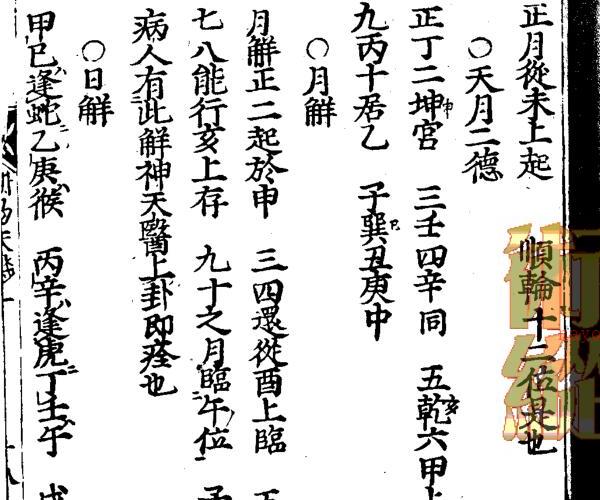 正月從未上起 順輪十二位是也
○天月二德
正丁二坤宮申 三壬四辛同 五乾亥六甲上
九丙十居乙 子巽巳丑庚中
○月解
月解正二起於申 三四還從酉上臨 五
七八能行亥上存 九十之月臨午位
病人有此解神天醫上卦即痊也
○日解
甲巳逢蛇乙庚猴 丙辛逢虎丁壬午